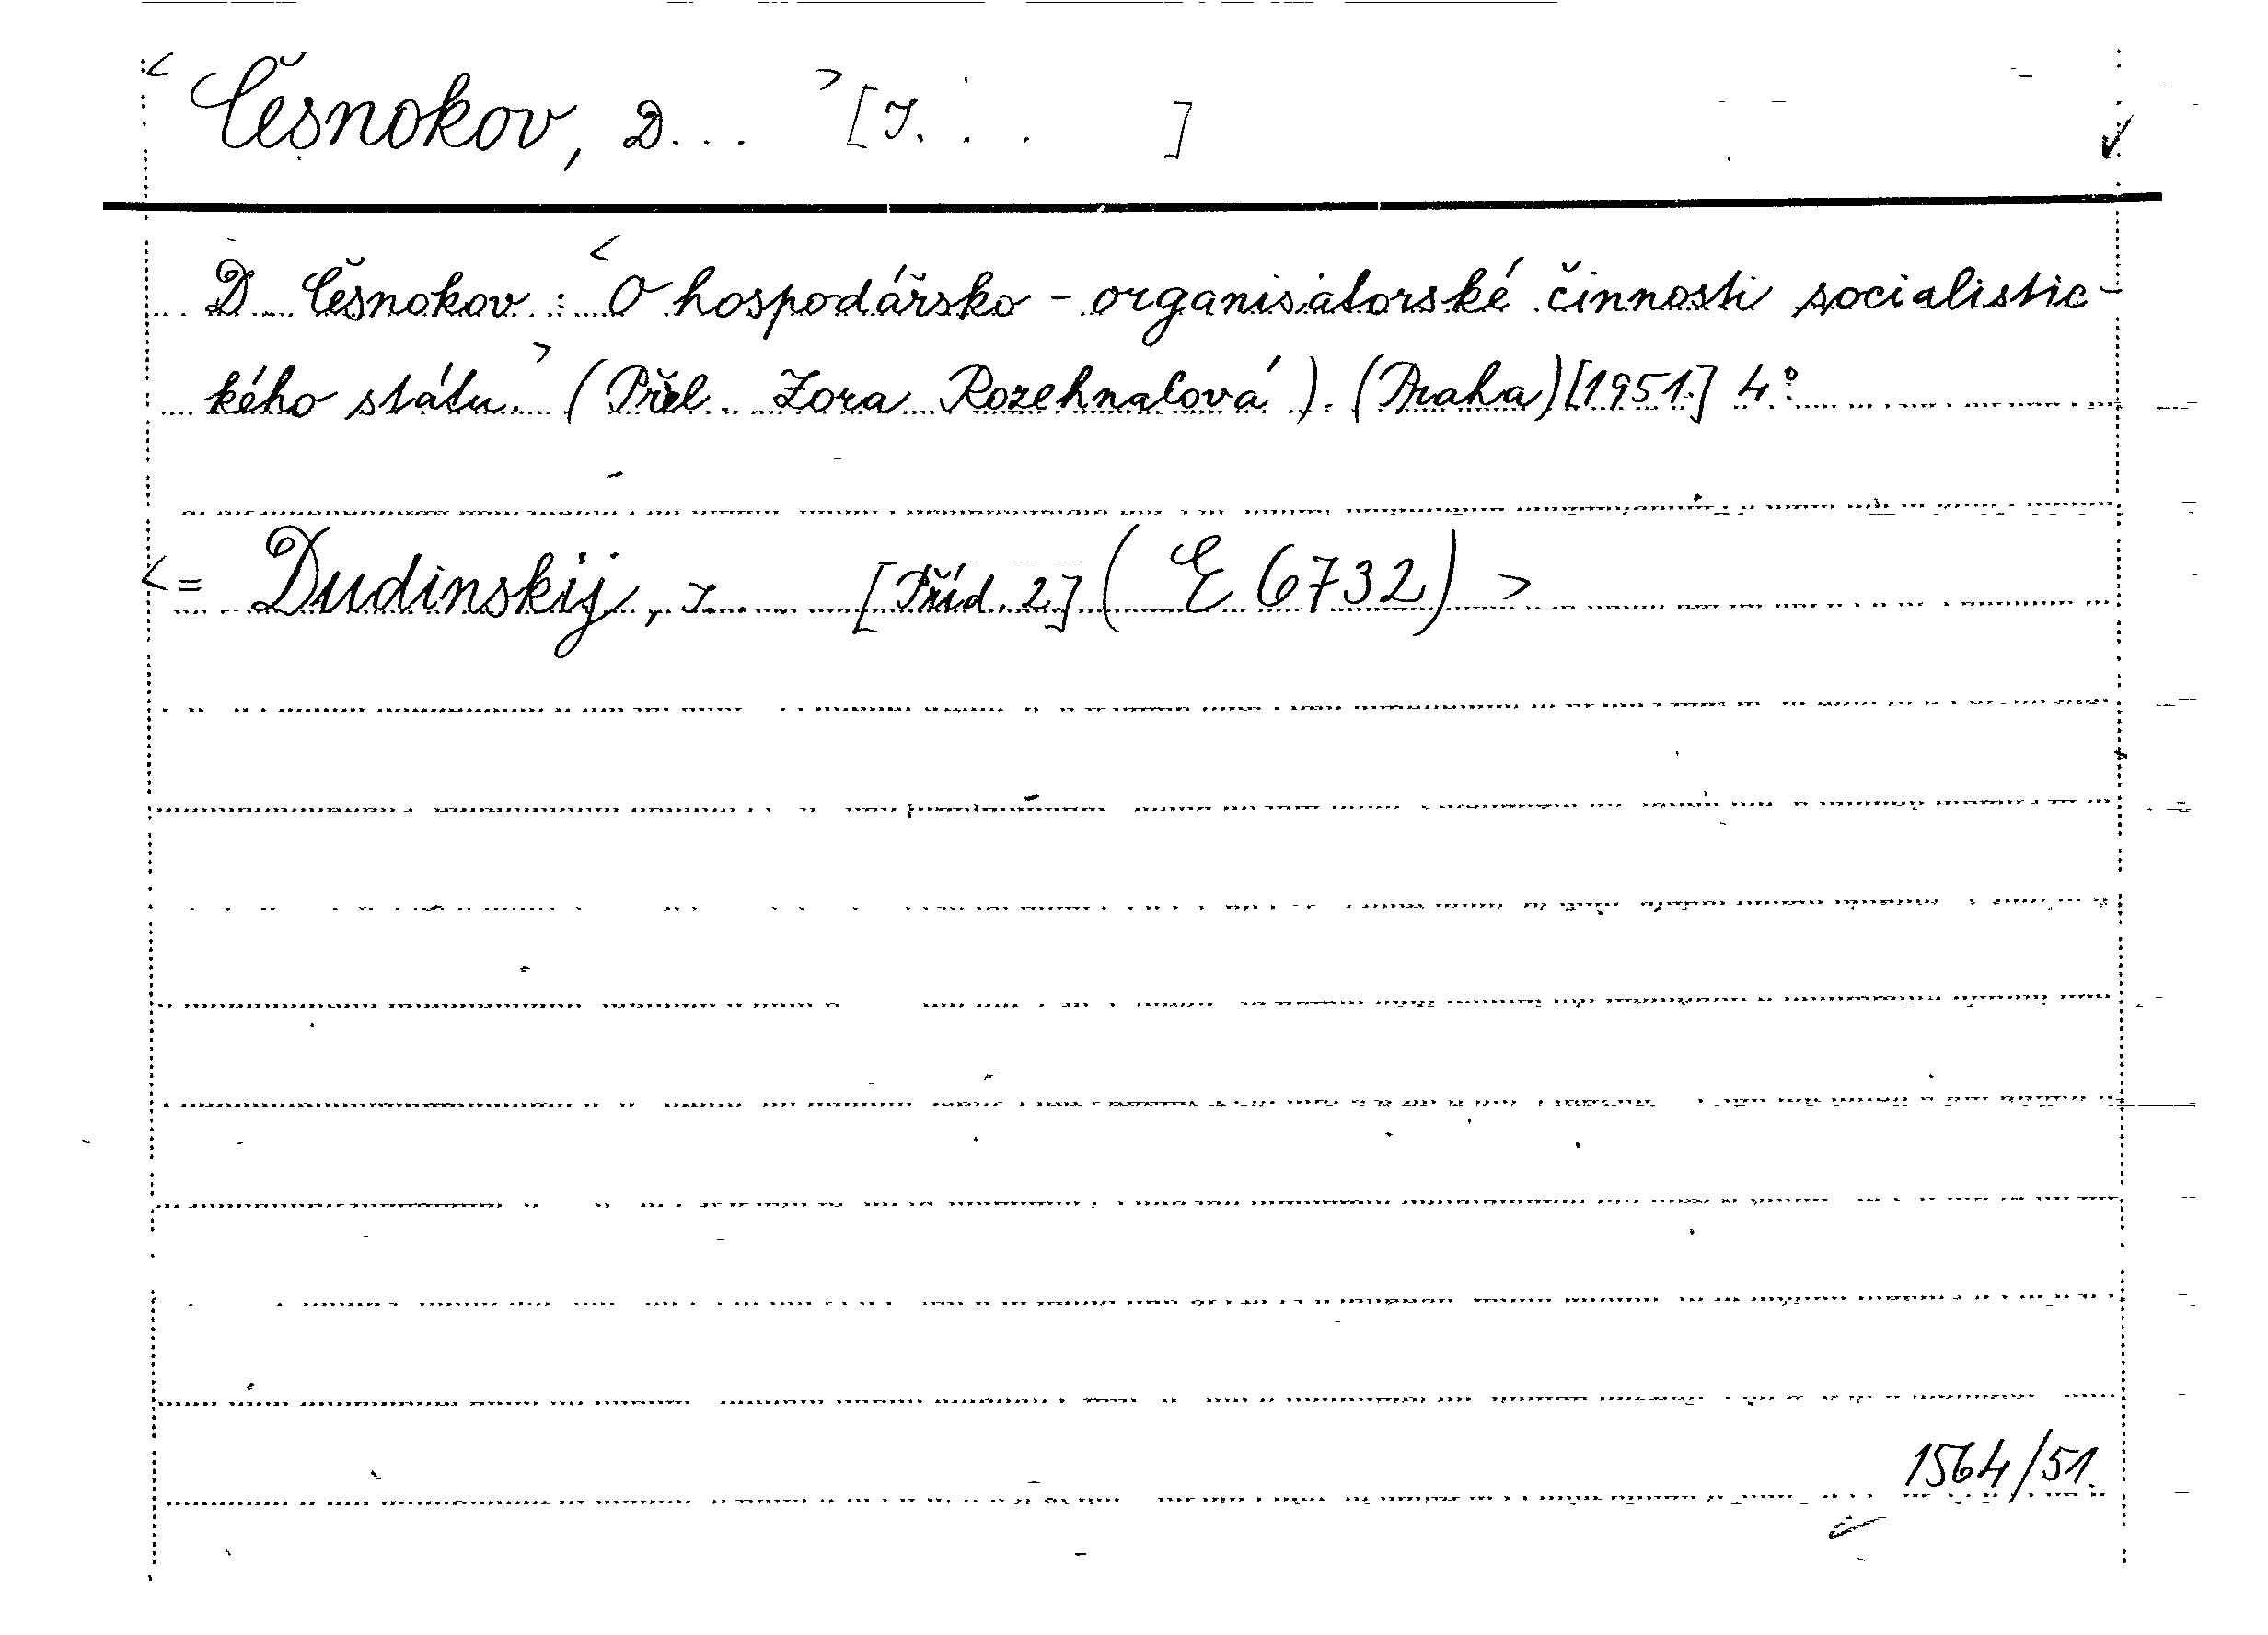 < Česnokov, D... > [I... ]
D. Česnokov: < O hospodářsko-organisátorské činnosti socialistic-
kého státu. > (Přel. Zora Rozehnalová). (Praha) [1951.] 4°
< = Dudinskij, I. [Příd. 2] (E 6732) >
1564/51.